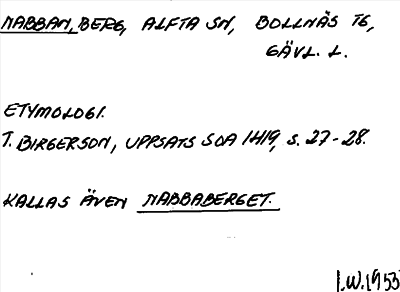 NABBAN, BERG, ALFTA SN, BOLLNÄS TG,
GÄVL. L.
ETYMOLOGI.
T. BIRGERSON, UPPSATS SOA 1419, S. 27-28.
KALLAS ÄVEN NABBABERGET.
I.W. 1953